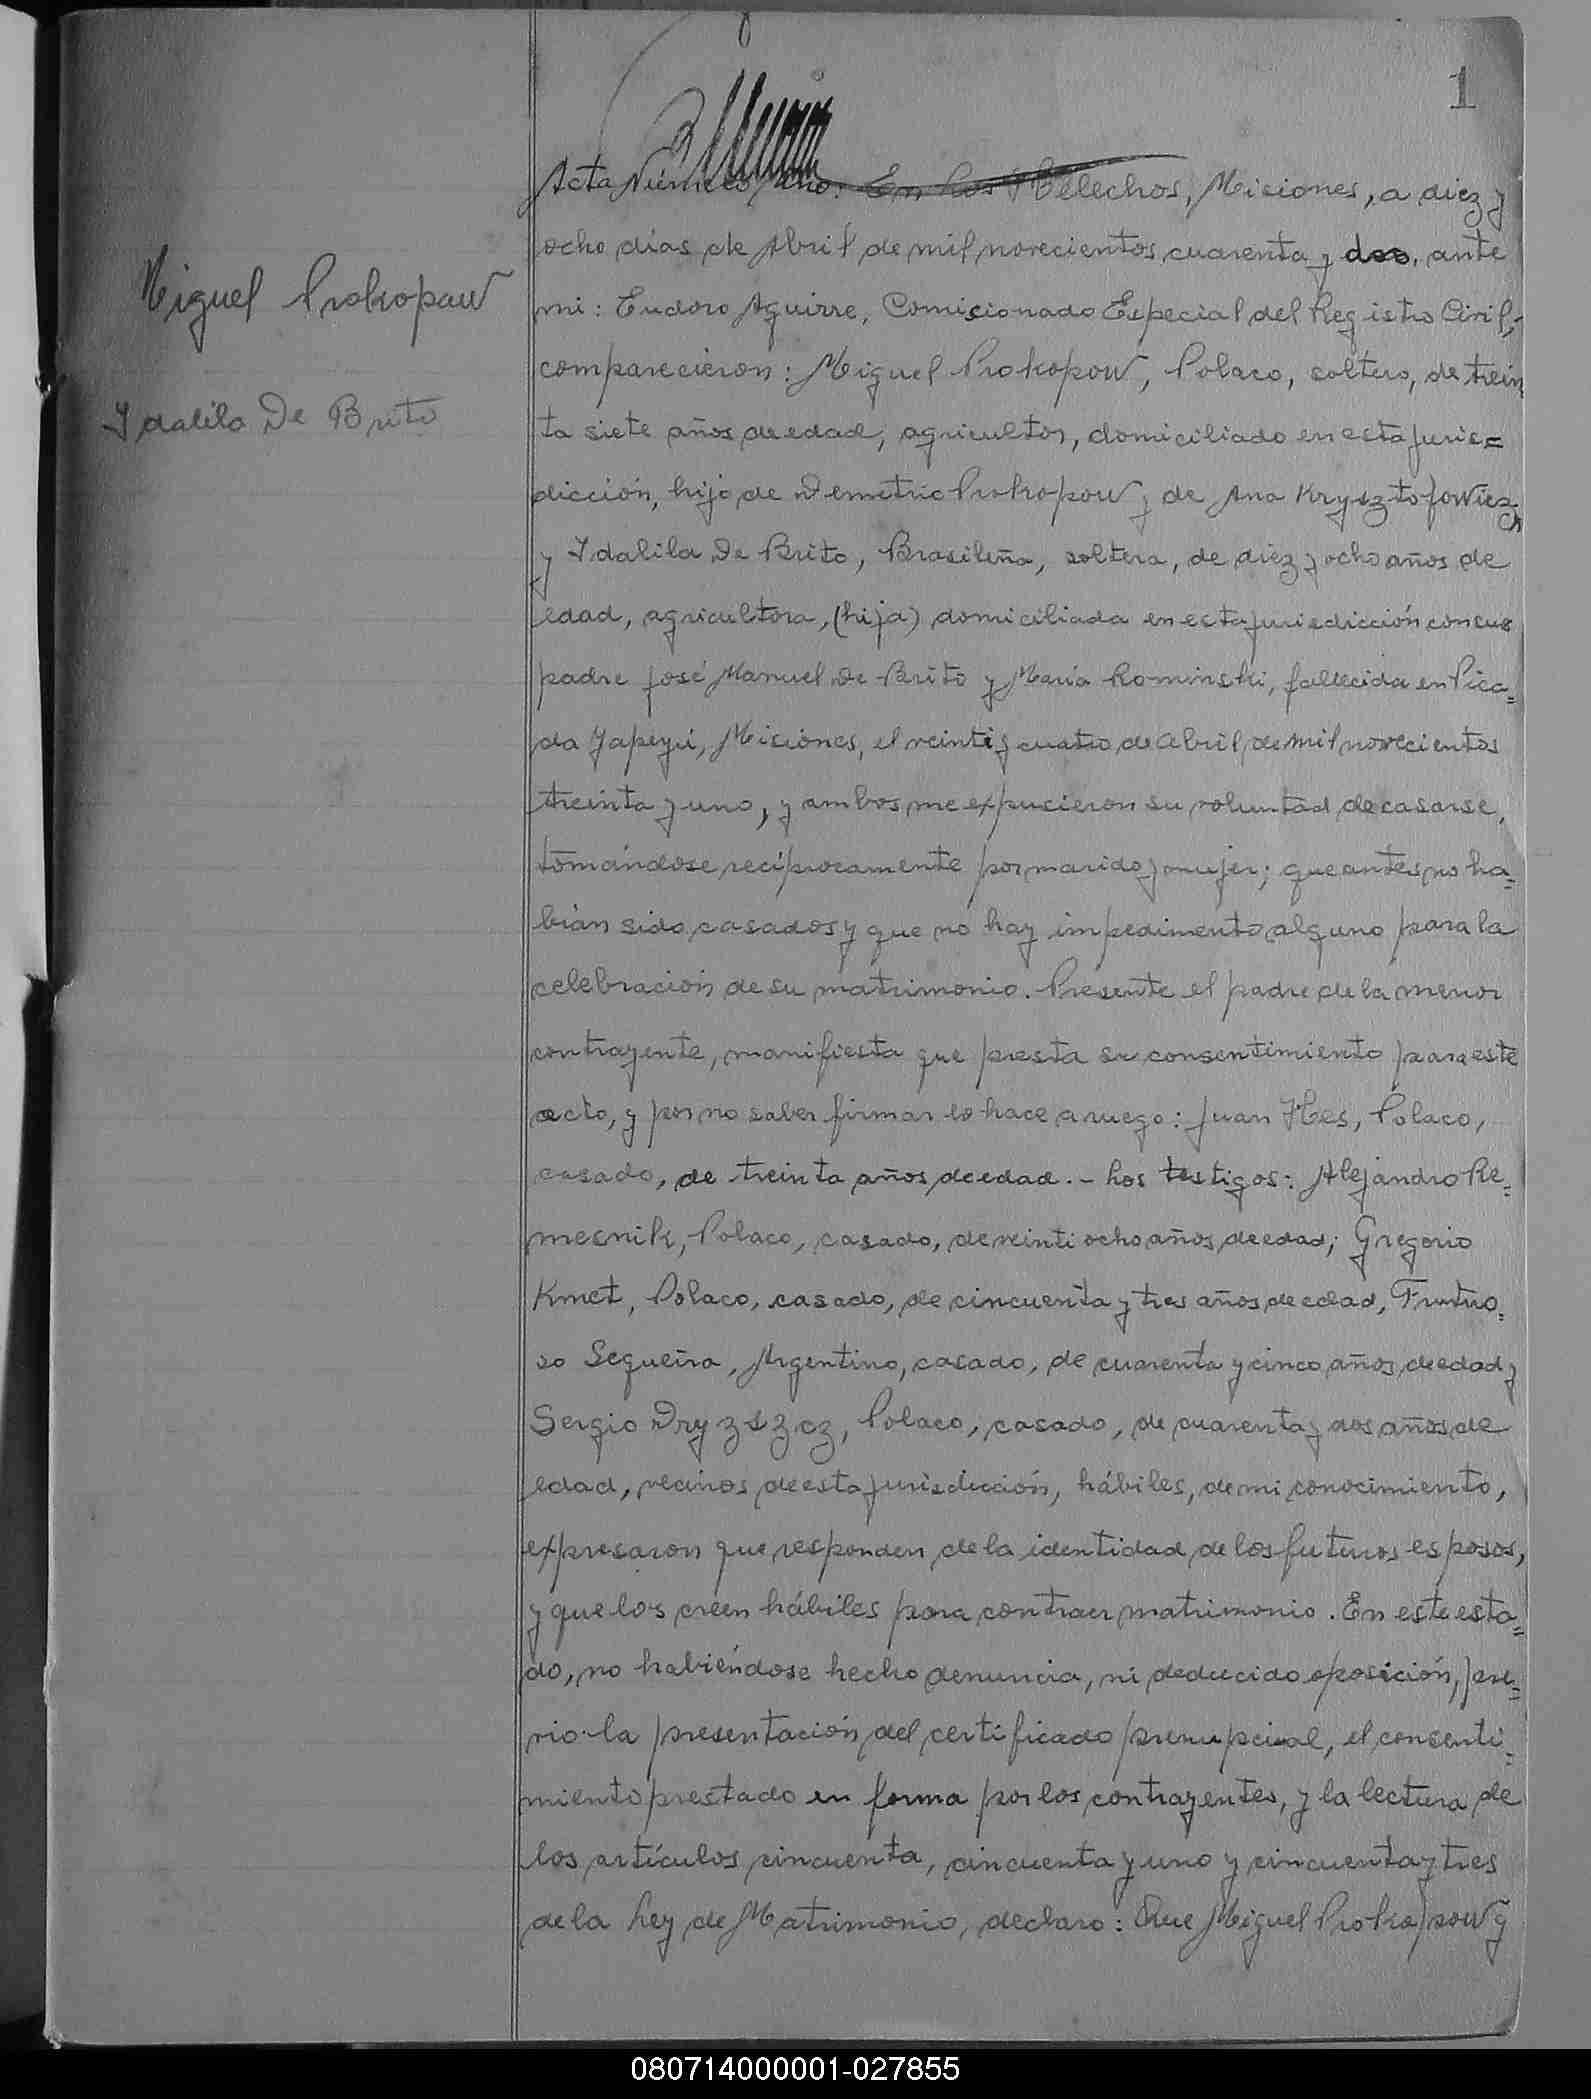 1
Acta Número uno: En Los Helechos, Misiones, a diez y
ocho días de Abril de mil novecientos cuarenta y dos, ante
Miguel Prokopow
mi: Eudoro Aguirre, Comisionado Especial del Registro Civil,
comparecieron: Miguel Prokopow, Polaco, soltero, de trein
Idalila De Brito
ta siete años de edad, agricultor, domiciliado en esta juris=
dicción, hijo de Demetrio Prokopow y de Ana Krysztofowiez,
y Idalila De Brito, Brasileña, soltera, de diez y ocho años de
edad, agricultora, (hija) domiciliada en esta jurisdicción con sus
padre José Manuel De Brito y María Rominski, fallecida en Pica=
da Yapeyú, Misiones, el veinti y cuatro de abril de mil novecientos
treinta y uno, y ambos me expucieron su voluntad de casarse,
tomándose recíprocamente por marido y mujer; que antes no ha=
bían sido casados y que no hay impedimento alguno para la
celebración de su matrimonio. Presente el padre de la menor
contrayente, manifiesta que presta su consentimiento para este
acto, y por no saber firmar lo hace a ruego: Juan Hes, Polaco,
casado, de treinta años de edad.- Los testigos: Alejandro Re=
mesnik, Polaco, casado, de veinti ocho años de edad; Gregorio
Kmet, Polaco, casado, de cincuenta y tres años de edad, Frutuo=
so Sequeira, Argentino, casado, de cuarenta y cinco años de edad y
Sergio Polaco, casado, de cuarenta y dos años de
edad, vecinos de esta jurisdicción, hábiles, de mi conocimiento,
expresaron que responden de la identidad de los futuros esposos,
y que los creen hábiles para contraer matrimonio. En este esta=
do, no habiéndose hecho denuncia, ni deducido oposición, pre=
vio la presentación del certificado prenupcial, el consenti=
miento prestado en forma por los contrayentes, y la lectura de
los artículos cincuenta, cincuenta y uno y cincuenta y tres
de la Ley de Matrimonio, declaro: Que Miguel Prokopow y
080714000001-027855